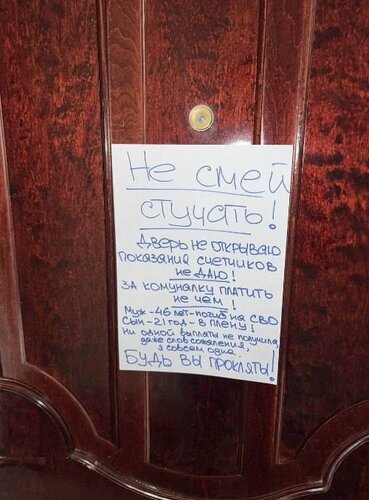 Не смей
стучать!
Дверь не открываю
показания счетчиков
не даю!
за комуналку платить
не чем!
Муж-46 лет-погиб на СВО
Сын-21 год-в плену!
ни одной выплаты не получила,
даже слов сожаления,
я совсем одна.
Будь вы прокляты!